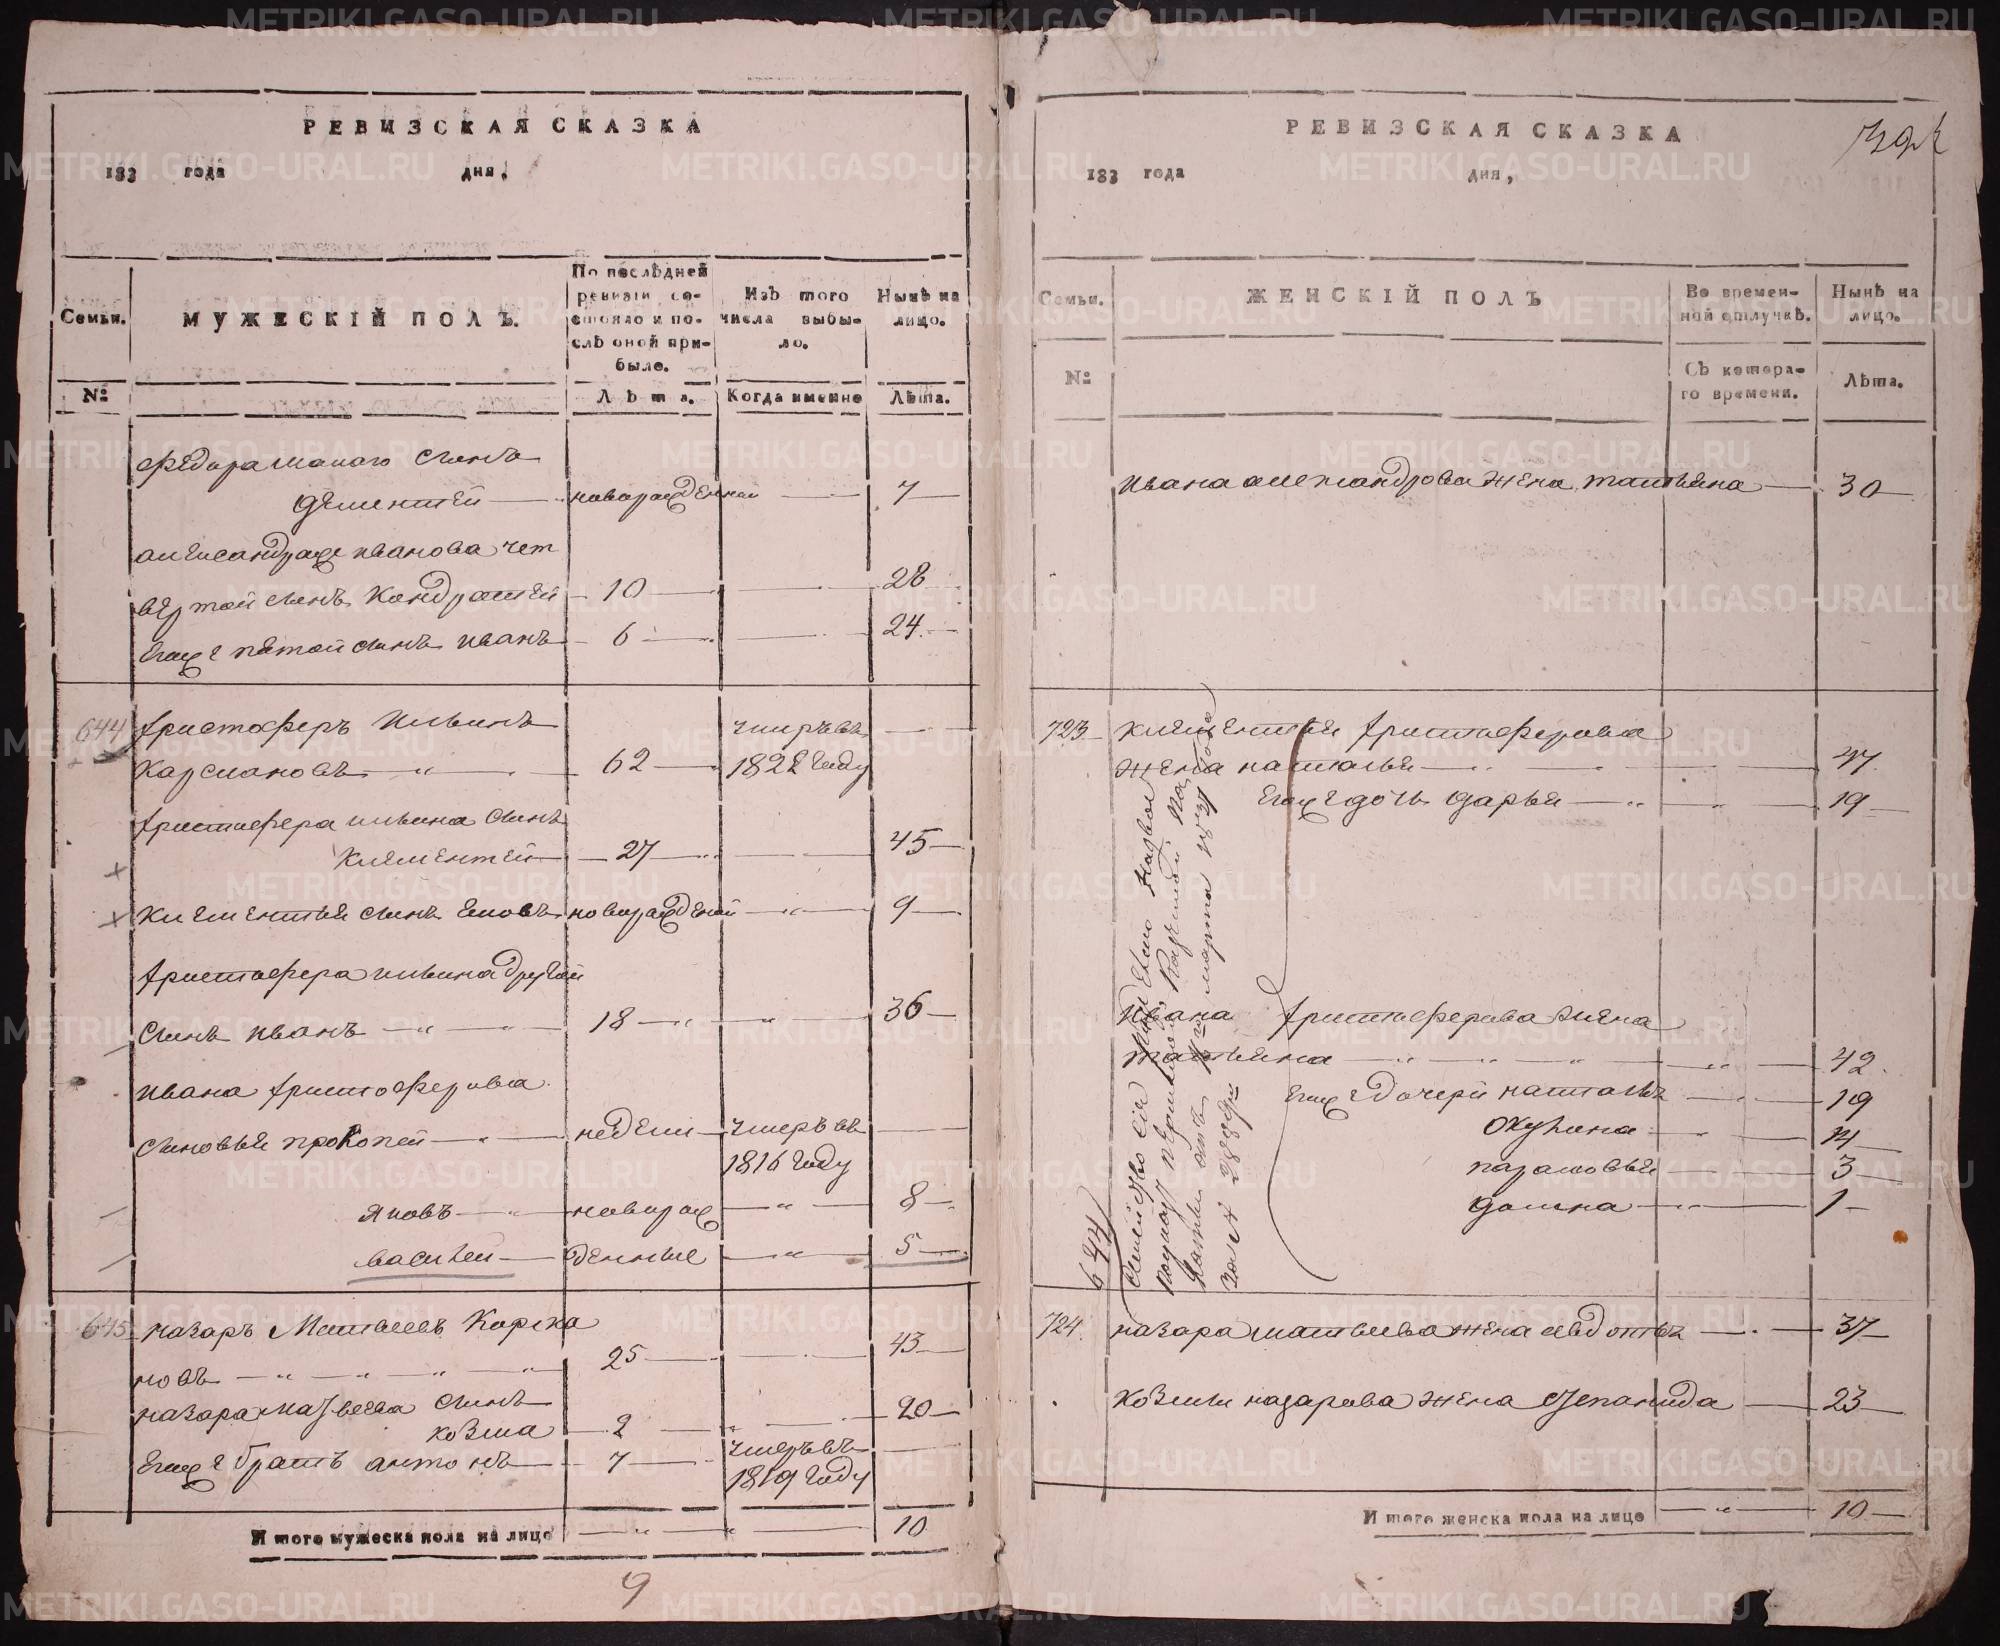 РЕВИЗСКАЯ СКАЗКА
183 года дня,
Семьи.
МУЖЕСКІЙ ПОЛЪ.
По послѣдней
ревизіи со-
стояло и по-
слѣ оной при-
было.
Изъ того
числа выбы-
ло.
Нынѣ на
лицо.
№
Лѣта.
Когда именно
Лѣта.
Федора малаго сынъ
Дементей новорожденной 7
Александра же Иванова чет
вертой сынъ Кондратей 10 28
Его же пятой сынъ Иванъ 6 24
644 Христоферъ Ильинъ умръ въ
Карсмановъ 62 1822 году
Христофера Ильина сынъ
Клементей 27 45
Клементья сынъ новорожденой 9
Христофера Ильина другой
сынъ Иванъ 18 36
Ивана Христоферова
сыновья Прокопей недели умръ въ
1816 году
Яковъ новорож 8
Василей денные 5
645 Назаръ Матвеевъ Корсма
новъ 25 43
Назара Матвеева сынъ
Козма 2 20
Его же братъ Антонъ 7 умръ въ
1819 году
Итого мужеска пола на лицо 10
9
РЕВИЗСКАЯ СКАЗКА
183 года дня,
Семьи.
ЖЕНСКІЙ ПОЛЪ
Во времен-
ной отлучкѣ.
Нынѣ на
лицо.
№
Съ котора-
го времени.
Лѣта.
Ивана Александрова жена Татьяна 30
723 Клементья Христоферова
жена Наталья 47
Его же дочь Дарья 19
Ивана Христоферова жена
Татьяна 42
Его же дочери Наталья 19
Акулина 14
Парасковья 3
Домна 1
644
Семейство сіе
отъ марта
за №
724 Назара Матвеева жена Авдотья 37
Козмы Назарова жена Степанида 23
Итого женска пола на лицо 10
METRIKI.GASO-URAL.RU